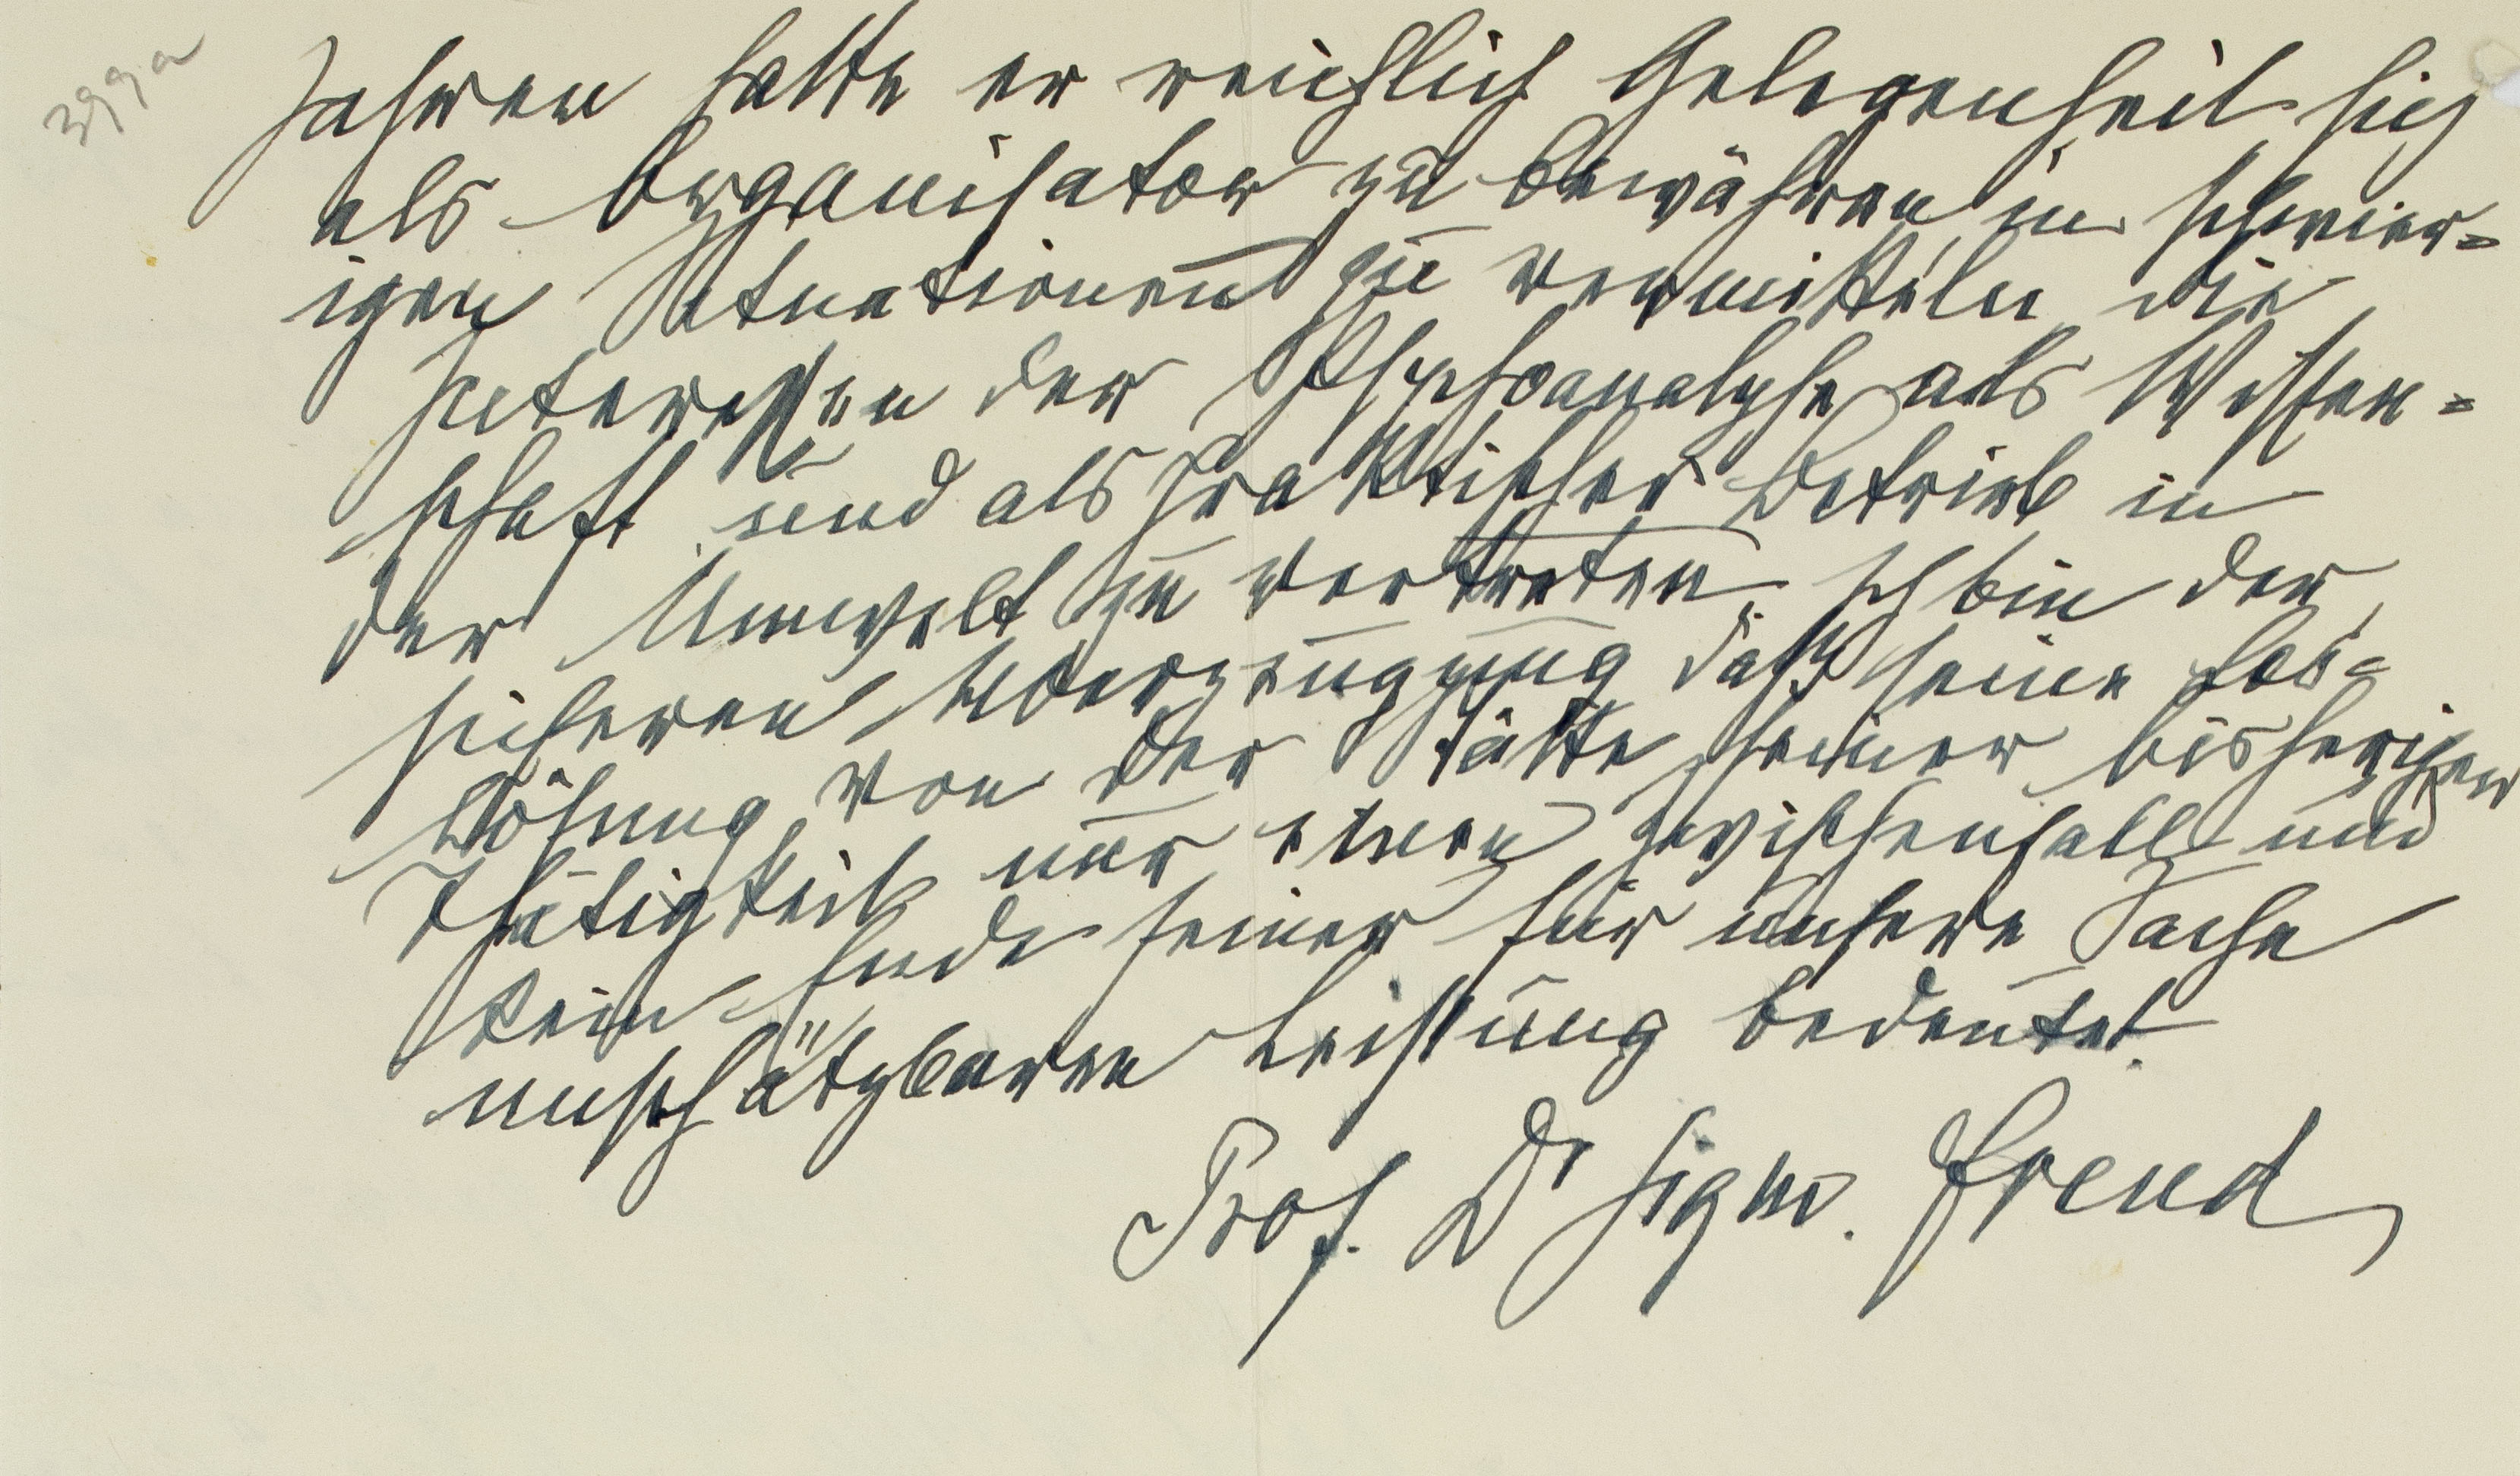 399a
Jahren hatte er reichlich Gelegenheit sich
als Organisator zu bewähren, in schwier=
igen Situationen zu vermitteln, die
Interessen der Psychoanalyse als Wissen=
schaft und als praktischer Betrieb in
der Umwelt zu vertreten. Ich bin der
sicheren Überzeugung, daß seine Los=
lösung von der Stätte seiner bisherigen
Thätigkeit nur einen Zwischenfall und
kein Ende seiner für unsere Sache
unschätzbaren Leistung bedeutet.
Prof. Dr Sigm. Freud